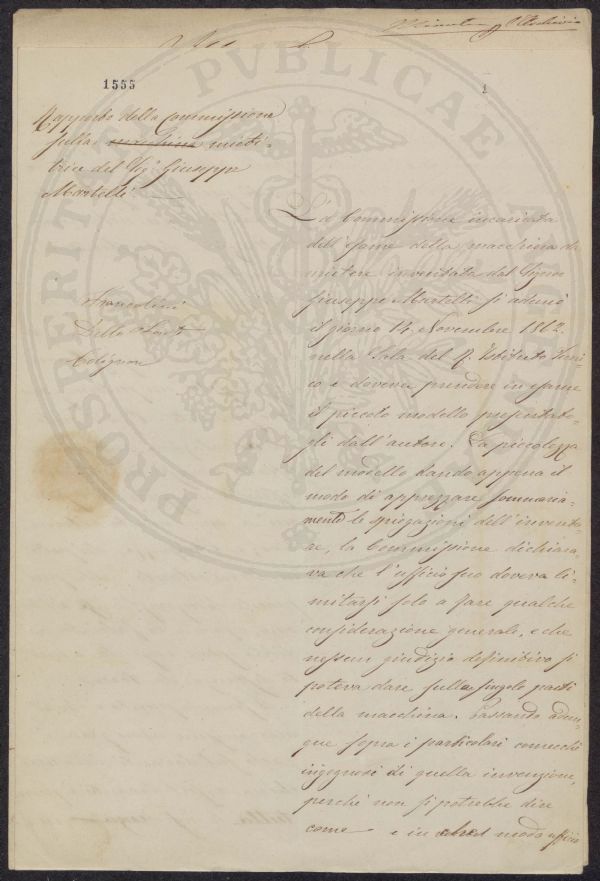 1555
1
Rapporto della Commissione
sulla macchina mieti-
trice del Sig. Giuseppe
Martelli
La Commissione incaricata
dell'esame della macchina da
mietere inventata dal Signor
Giuseppe Martelli si adunò
il giorno 14 Novembre 1862
nella Sala del R. Istituto Tecni-
co e doveva prendere in esame
il piccolo modello presentato-
gli dall'autore. La piccolezza
del modello dando appena il
modo di apprezzare sommaria-
mente le spiegazioni dell'invento-
re, la Commissione dichiara-
va che l'ufficio suo doveva li-
mitarsi solo a fare qualche
considerazione generale, e che
nessun giudizio definitivo si
poteva dare sulle singole parti
della macchina. Passando adun-
que sopra i particolari comecchè
ingegnosi di quella invenzione,
perchè non si potrebbe dire
come e in modo
PROSPERITATI PVBLICAE